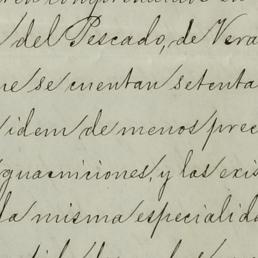 del Pescado, de Vera
ue se cuentan setenta
idem de menos prec
guarniciones, y las exis
la misma especialida